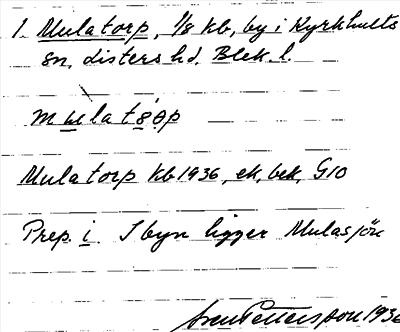 1. Mulatorp, 1/8 kb, by i Kyrkhults
sn. Listers hd. Blek. l.
Mulatorp kb 1936, ek, bek, G10
Prep. i. I byn ligger Mulasjön
Sven Pettersson 1936